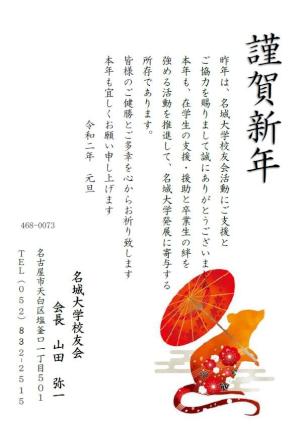 謹賀新年
昨年は、名城大学校友会活動にご支援と
ご協力を賜りまして誠にありがとうございま
本年も、在学生の支援・援助と卒業生の絆を
強める活動を推進して、名城大学発展に寄与する
所存であります。
皆様のご健勝とご多幸を心からお祈り致します
本年も宜しくお願い申し上げます
令和二年　元旦
名城大学校友会
会長　山田　弥一
468-0073
名古屋市天白区塩釜口一丁目501
TEL(052)832-2515